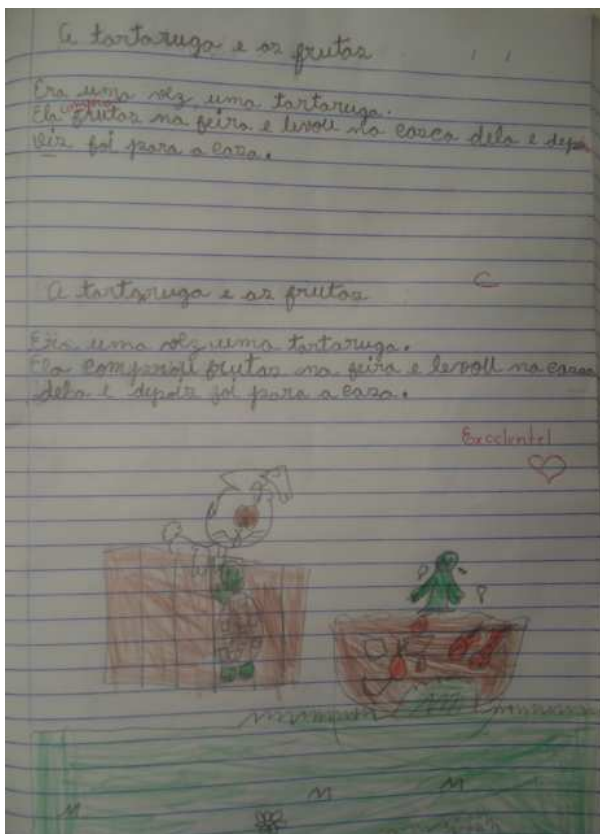 A tartaruga e as frutas
Era uma vez uma tartaruga.
Ela comprou frutas na feira e levou na casca dela e depo
is foi para a casa.
A tartaruga e as frutas
C
Era uma vez uma tartaruga.
Ela comprou frutas na feira e levou na casca
dela e depois foi para a casa.
Excelente!